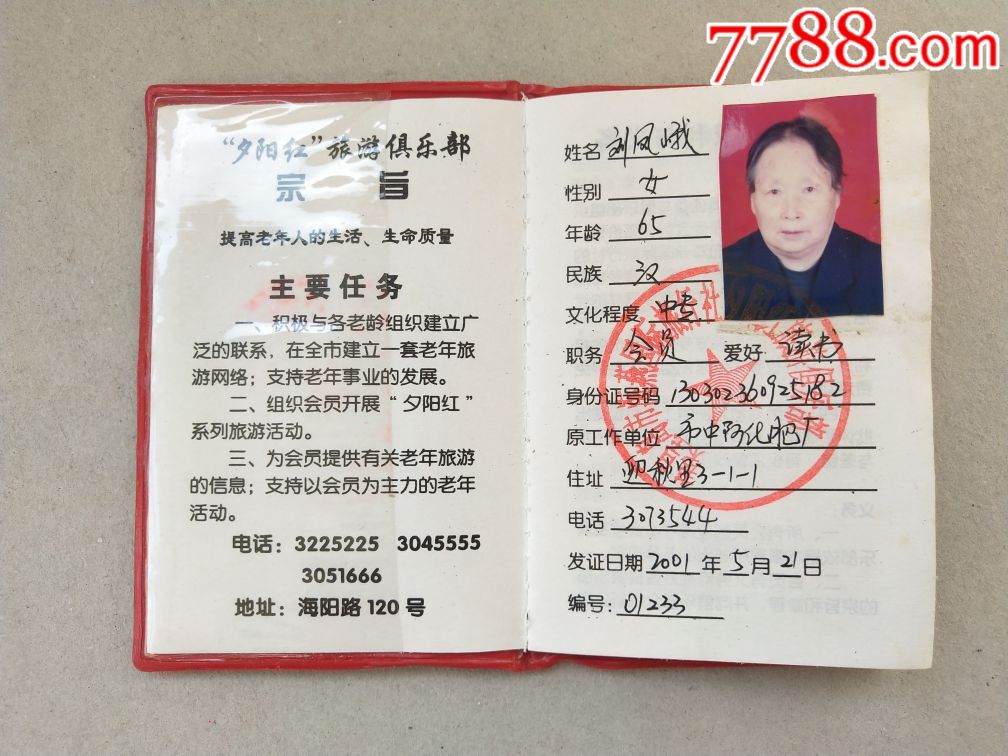 7788.com
“夕阳红”旅游俱乐部
宗 旨
提高老年人的生活、生命质量
主要任务
一、积极与各老龄组织建立广
泛的联系，在全市建立一套老年旅
游网络；支持老年事业的发展。
二、组织会员开展“夕阳红”
系列旅游活动。
三、为会员提供有关老年旅游
的信息；支持以会员为主力的老年
活动。
电话：3225225 3045555
3051666
地址：海阳路120号
姓名 刘凤娥
性别 女
年龄 65
民族 汉
文化程度 中专
职务 会员 爱好 读书
身份证号码 130302360925182
原工作单位 市中阿化肥厂
住址 迎秋里3-1-1
电话 3073544
发证日期 2001 年 5 月 21 日
编号：01233